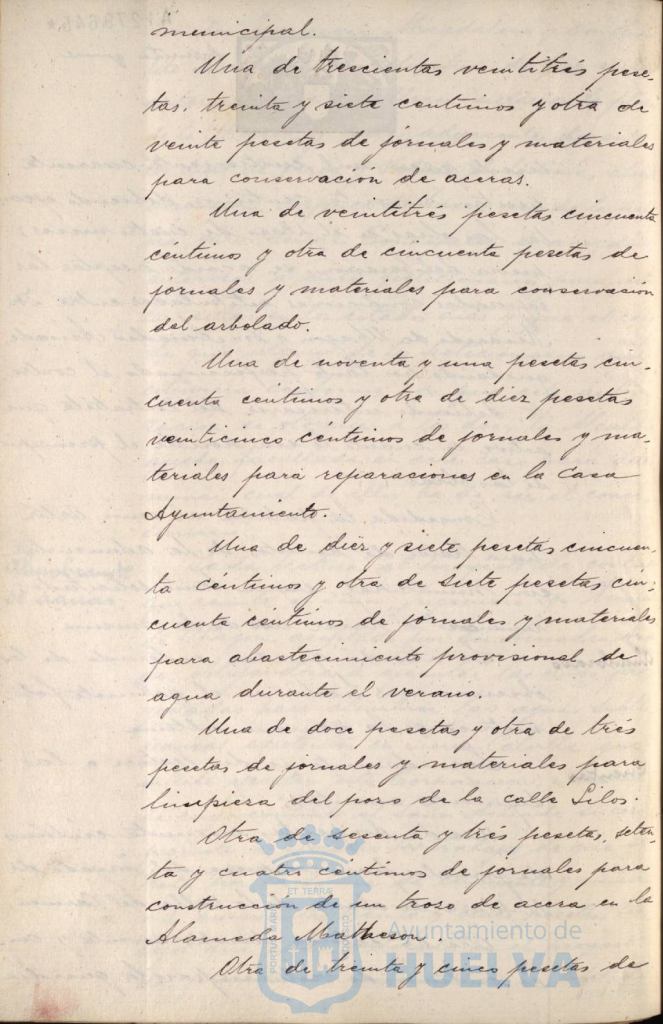 municipal.
Una de trescientas veintitrés pese-
tas, treinta y siete centimos y otra de
veinte pesetas de jornales y materiales
para conservación de aceras.
Una de veintitrés pesetas cincuenta
céntimos y otra de cincuenta pesetas de
jornales y materiales para conservación
del arbolado.
Una de noventa y una pesetas cin-
cuenta centimos y otra de diez pesetas
veinticinco céntimos de jornales y ma-
teriales para reparaciones en la Casa
Ayuntamiento.
Una de diez y siete pesetas cincuen-
ta céntimos y otra de siete pesetas cin-
cuenta céntimos de jornales y materiales
para abastecimiento provisional de
agua durante el verano.
Una de doce pesetas y otra de trés
pesetas de jornales y materiales para
limpieza del pozo de la calle Silos.
Otra de sesenta y trés pesetas, seten-
ta y cuatro céntimos de jornales para
construcción de un trozo de acera en la
Alameda Matheson.
Otra de treinta y cinco pesetas de
ET TERRÆ
Ayuntamiento de
HUELVA